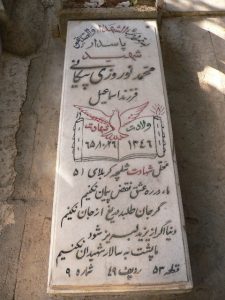 پاسدار
شهید
محمد نوروزی پیکانی
فرزند اسماعیل
ولادت
شهادت
۱۳۴۶
۶۵/۱۰/۲۶
محل شهادت شلمچه کربلای ۵
ما در ره عشق نقض پیمان نکنیم
گر جان طلبد دریغ از جان نکنیم
دنیا اگر از یزید لبریز شود
ما پشت به سالار شهیدان نکنیم
قطعه ۵۳ ردیف ۴۹ شماره ۹